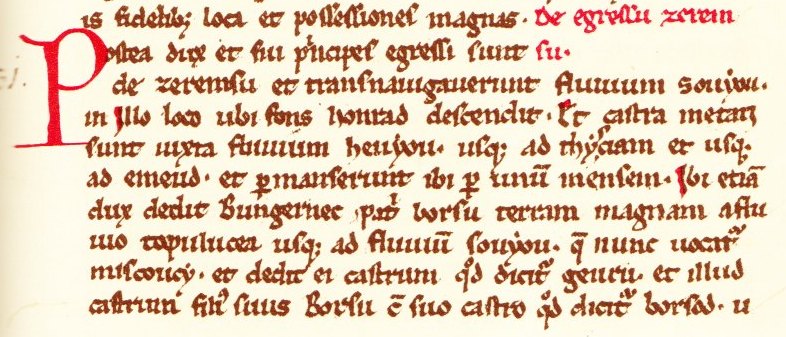 is fidelib; loca et possessiones magnas. De egressu zerem
Postea dux et sui p̲ncipes egressi sunt su.
de zeremsu et transnauigauerunt fluuium souyou.
in Illo loco ubi fons honrad descendit. Et castra metati
sunt iuxta fluuium heuyou. usq; ad thysciam et usq;
ad emeud. et p̲manserunt ibi p̲ unū mensem. Ibi etiā
dux dedit Bungernec pat̾ borsu terram magnam a flu
uio topulucea usq; ad fluuiū souyou. q̄ nunc uocat᷑
miscoucy. et dedit ei castrum qd̾ dicit᷑ geuru. et illud
castrum fili᷒ suus Borsu c̄ suo castro qd̾ dicit᷑ borsod. u